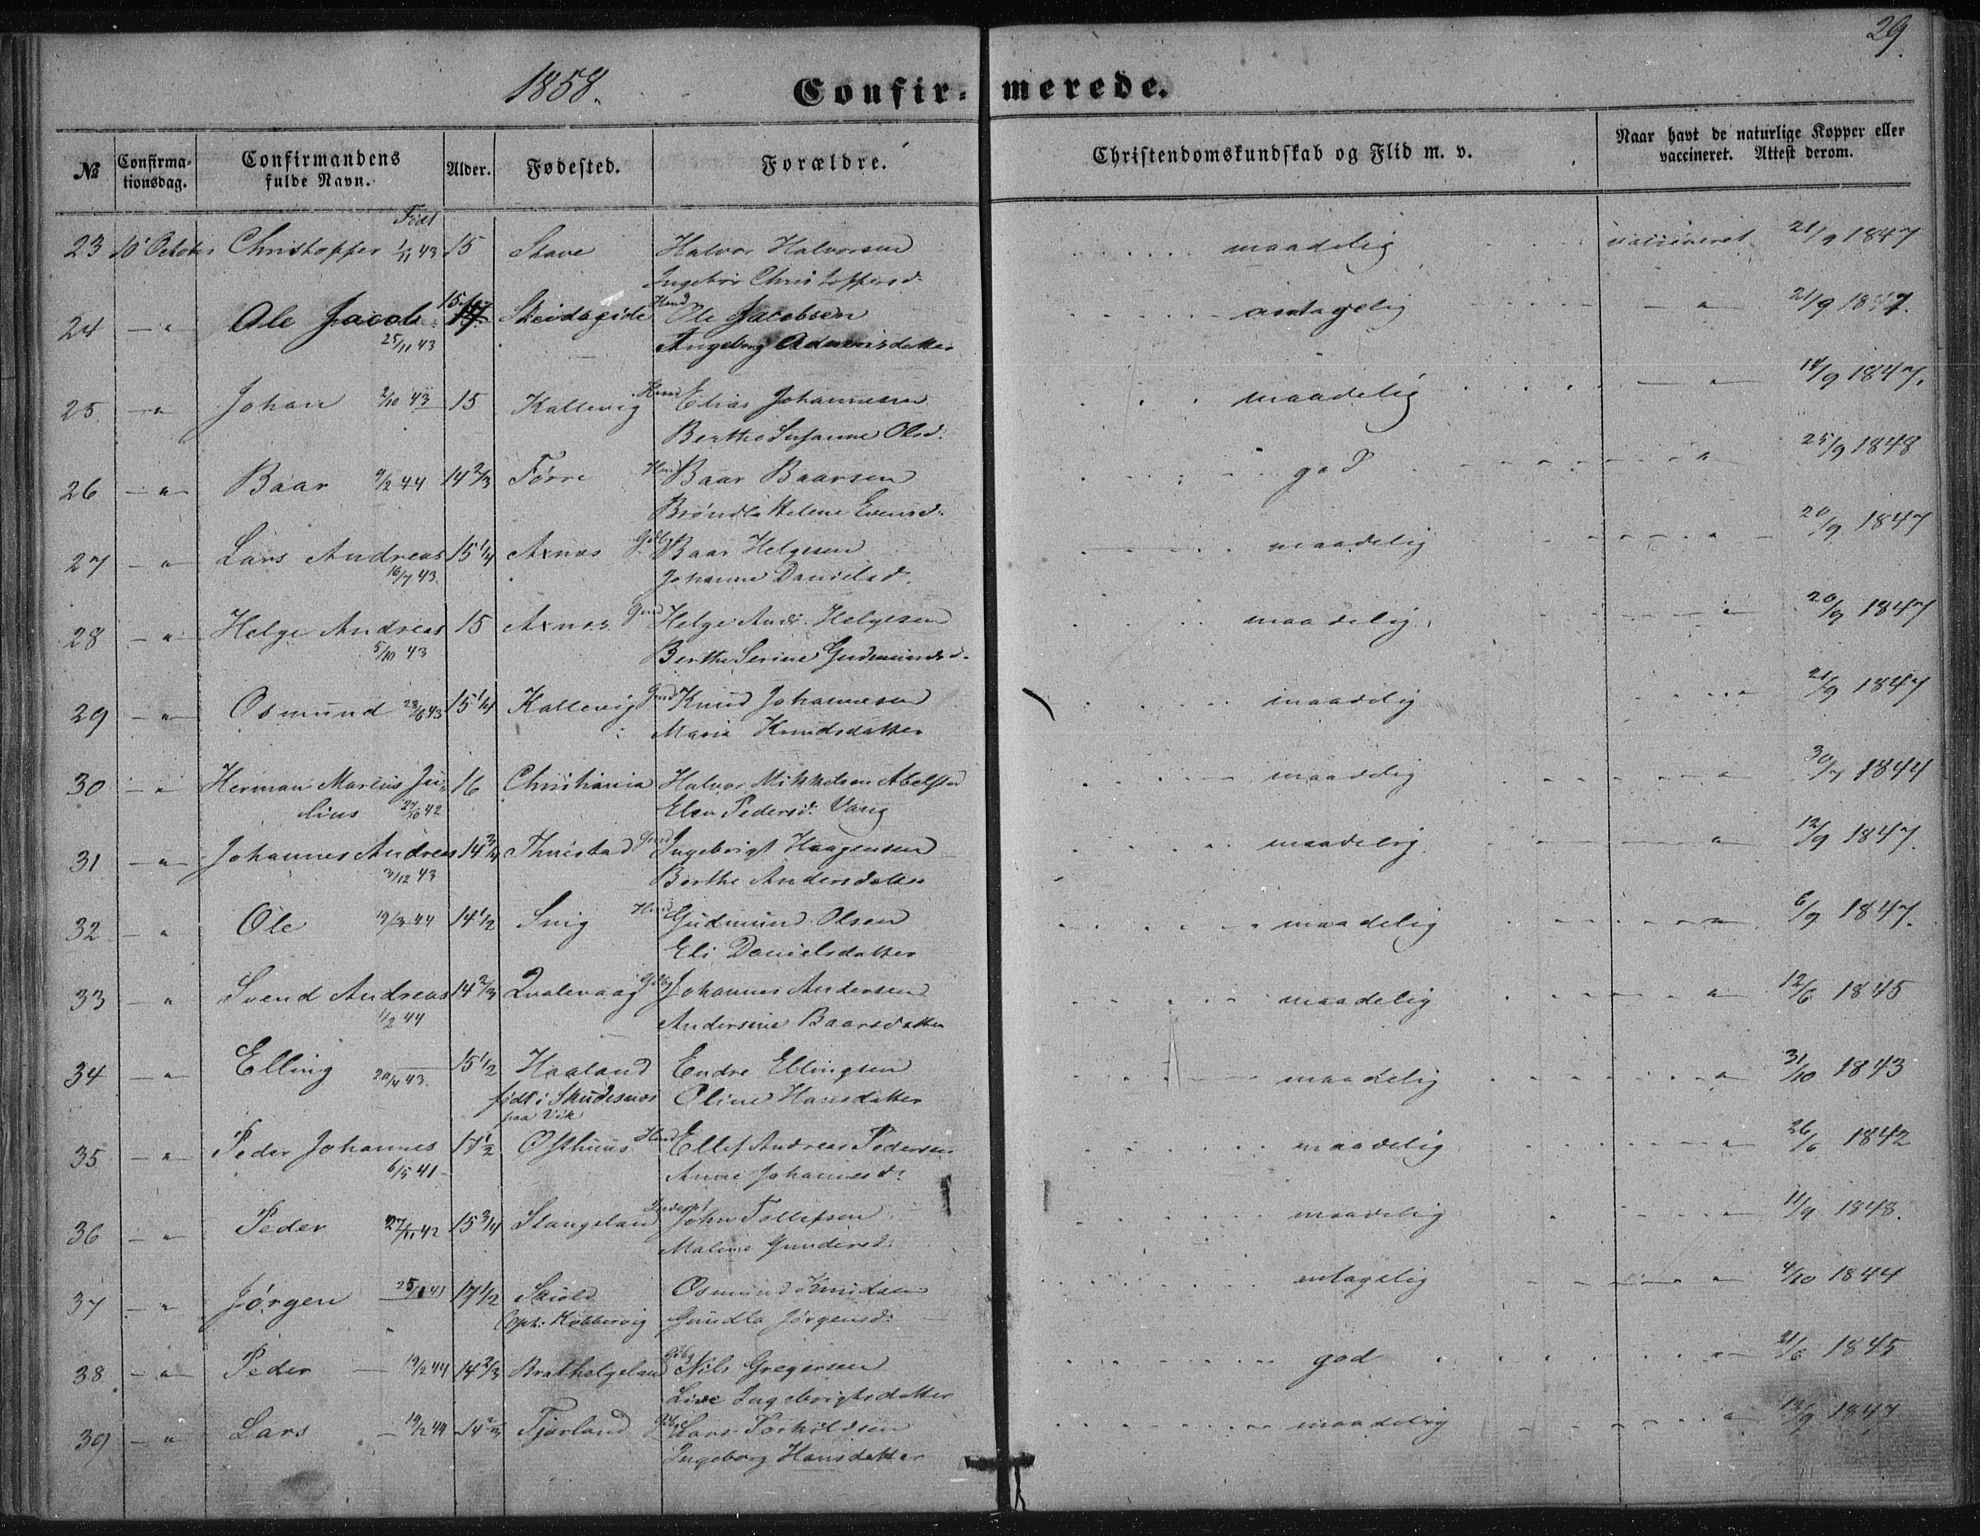 29.
1858. Confir- merede.
№ Confirma- tionsdag. Confirmandens fulde Navn. Alder. Fødested. Forældre. Christendomskundskab og Flid m. v. Naar havt de naturlige Kopper eller vaccineret. Attest derom.
Født
23 10' October Christopher 1/11 43 15 Stave Halvor Halvorsen maadelig vaccineret 21/9 1847
Ingebor Christophersd.
24 — " Ole Jacob 15 Ole Jacobsen antagelig — " — 21/9 1847.
25/11 43 Ingeborg
25 — " Johan 2/10 43 15 Kallevig Hmd Elias Johannesen maadelig — " — 14/9 1847.
Berthe Susanne Olsd.
26 — " — Baar 9/2 44 14 2/3 Førre Hmd Baar Baarsen god " 25/9 1848
Brøndla Helene Evensd.
27 — " Lars Andreas 15 1/4 Axnes Gbr Baar Helgesen maadelig " 20/9 1847
16/7 43. Johanne Danielsd.
28 — " Helge Andreas 15 Axnes Gmd Helge Andr. Helgesen maadelig " 20/9 1847
5/10 43 Berthe Serine Gudmundsd.
29 — " — Osmund 28/6 43 15 1/4 Kallevig Gmd Knud Johannesen maadelig " 21/9 1847
Maria Knudsdatter
30 — " Herman Marius Ju- 16 Christiania Halvor Mikkelsen maadelig " 30/7 1844
lius 27/10 42 Elen Pedersd. Vang
31 — " — Johannes Andreas 14 3/4 Thuestad Gmd Ingebrigt Haagensen maadelig " 12/9 1847.
3/12 43 Berthe Andersdatter
32 — " Ole 19/3 44 14 1/2 Hmd Gudmund Olsen maadelig " 6/9 1847.
Eli Danielsdatter
33 — " Svend Andreas 14 2/3 Qvalevaag Gbr Johannes Andersen maadelig " 12/6 1845
11/2 44 Andersine Baarsdatter
34 — " Elling 20/4 43. 15 1/2 Haaland Endre Ellingsen maadelig " 31/10 1843
født i Skudesnæs Oline Hansdatter
paa Vik
35 — " Peder Johannes 17 1/2 Østhuus Hmd Ellef Andreas Pedersen maadelig " 26/6 1842
6/5 41. Anne Johannesd.
36 — " Peder 27/11 42 15 3/4 Stangeland John Tollefsen maadelig " 11/9 1848.
Maline Gundersd.
37 — " Jørgen 17 1/2 Skiold Osmund Knudsen antagelig " 4/10 1844
Oph: Kobbervig Gundla Jørgensd.
38 — " Peder 19/2 44 14 2/3 Brathelgeland Gbr Nils Gregersen god " 21/6 1845
Live Ingebrigtsdatter
39 — " Lars 19/2 44 14 2/3 Fjørland Gbr Lars Torkildsen maadelig " 13/9 1847
Ingeborg Hansdatter